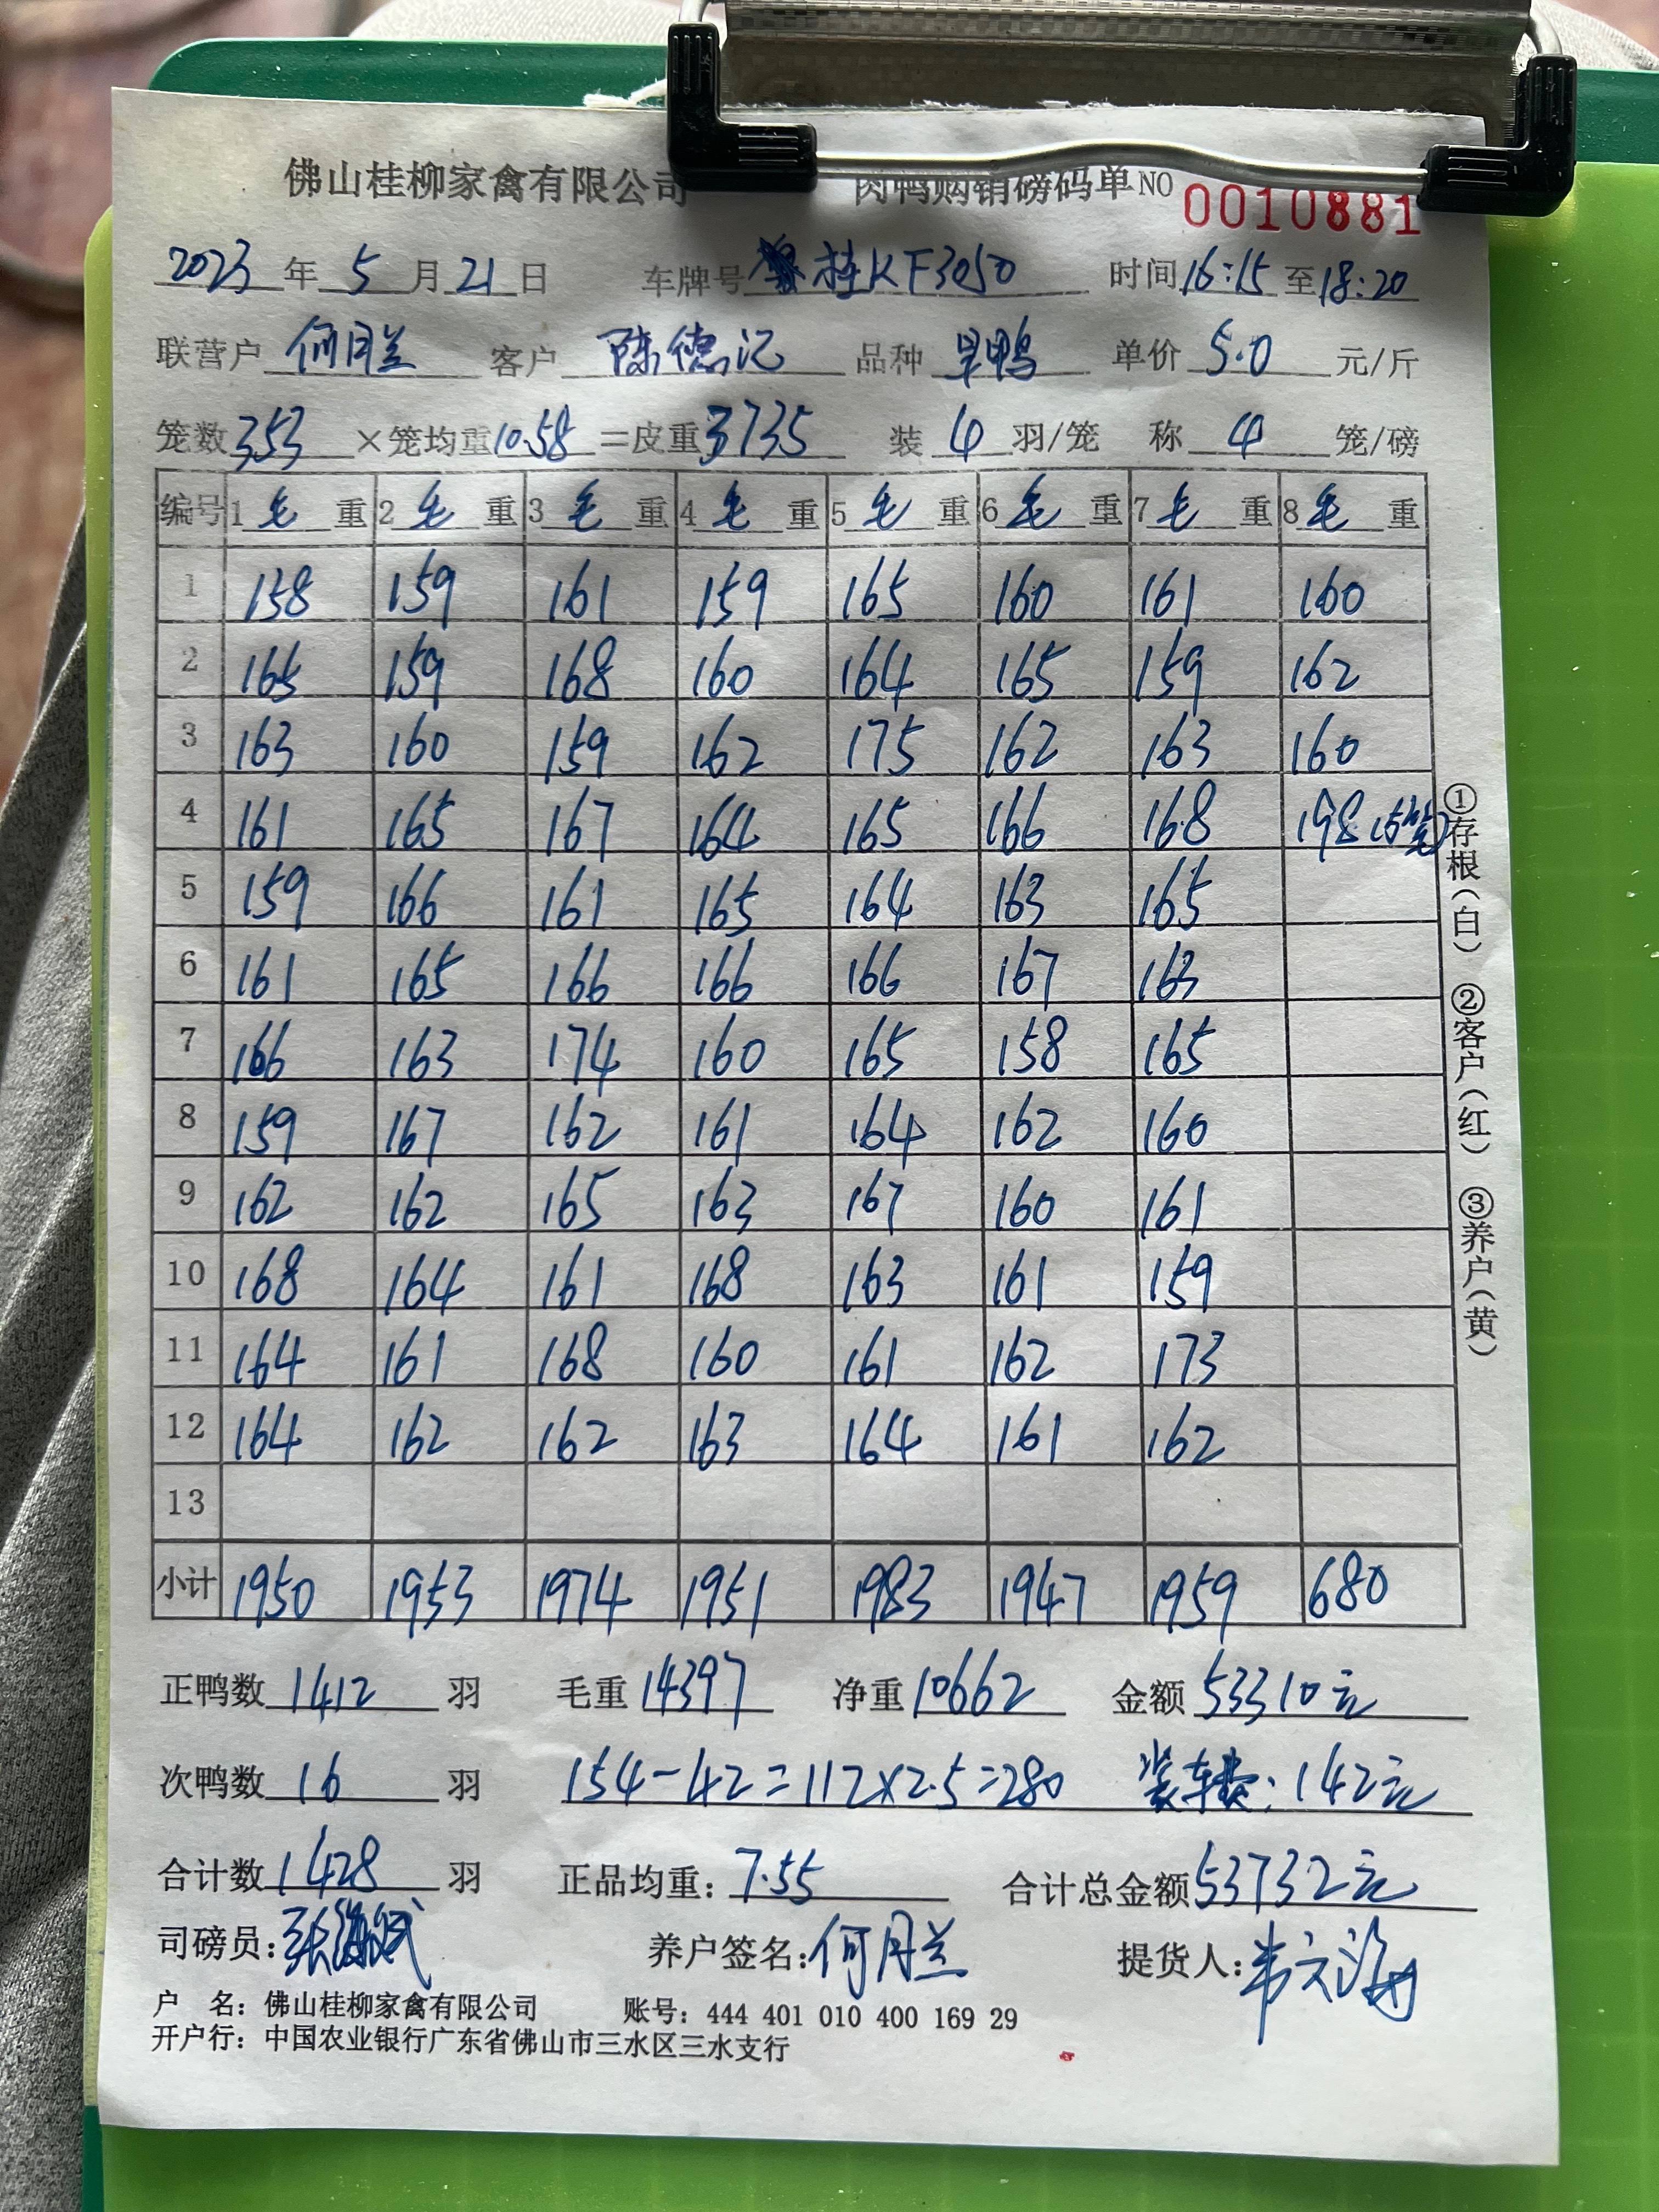 佛山桂柳家禽有限公司 肉鸭购销磅码单NO 0010881
2023年5月21日 车牌号 桂KF3050 时间16:15至18:20
联营户 何月兰 客户 陈德记 品种 旱鸭 单价 5.0 元/斤
笼数353×笼均重10.58=皮重3735 装 4 羽/笼 称 4 笼/磅
编号 1毛重 2毛重 3毛重 4毛重 5毛重 6毛重 7毛重 8毛重
1 158 159 161 159 165 160 161 160
2 165 159 168 160 164 165 159 162
3 163 160 159 162 175 162 163 160
4 161 165 167 164 165 166 168 198(5笼)
5 159 166 161 165 164 163 165
6 161 165 166 166 166 167 163
7 166 163 174 160 165 158 165
8 159 167 162 161 164 162 160
9 162 162 165 163 167 160 161
10 168 164 161 168 163 161 159
11 164 161 168 160 161 162 173
12 164 162 162 163 164 161 162
13
小计 1950 1953 1974 1951 1983 1947 1959 680
①存根(白) ②客户(红) ③养户(黄)
正鸭数 1412 羽 毛重 14397 净重 10662 金额 53310元
次鸭数 16 羽 154-42=112×2.5=280 装车费:142元
合计数 1428 羽 正品均重: 7.55 合计总金额 53732元
司磅员: 养户签名:何月兰 提货人:
户 名: 佛山桂柳家禽有限公司 账号: 444 401 010 400 169 29
开户行: 中国农业银行广东省佛山市三水区三水支行